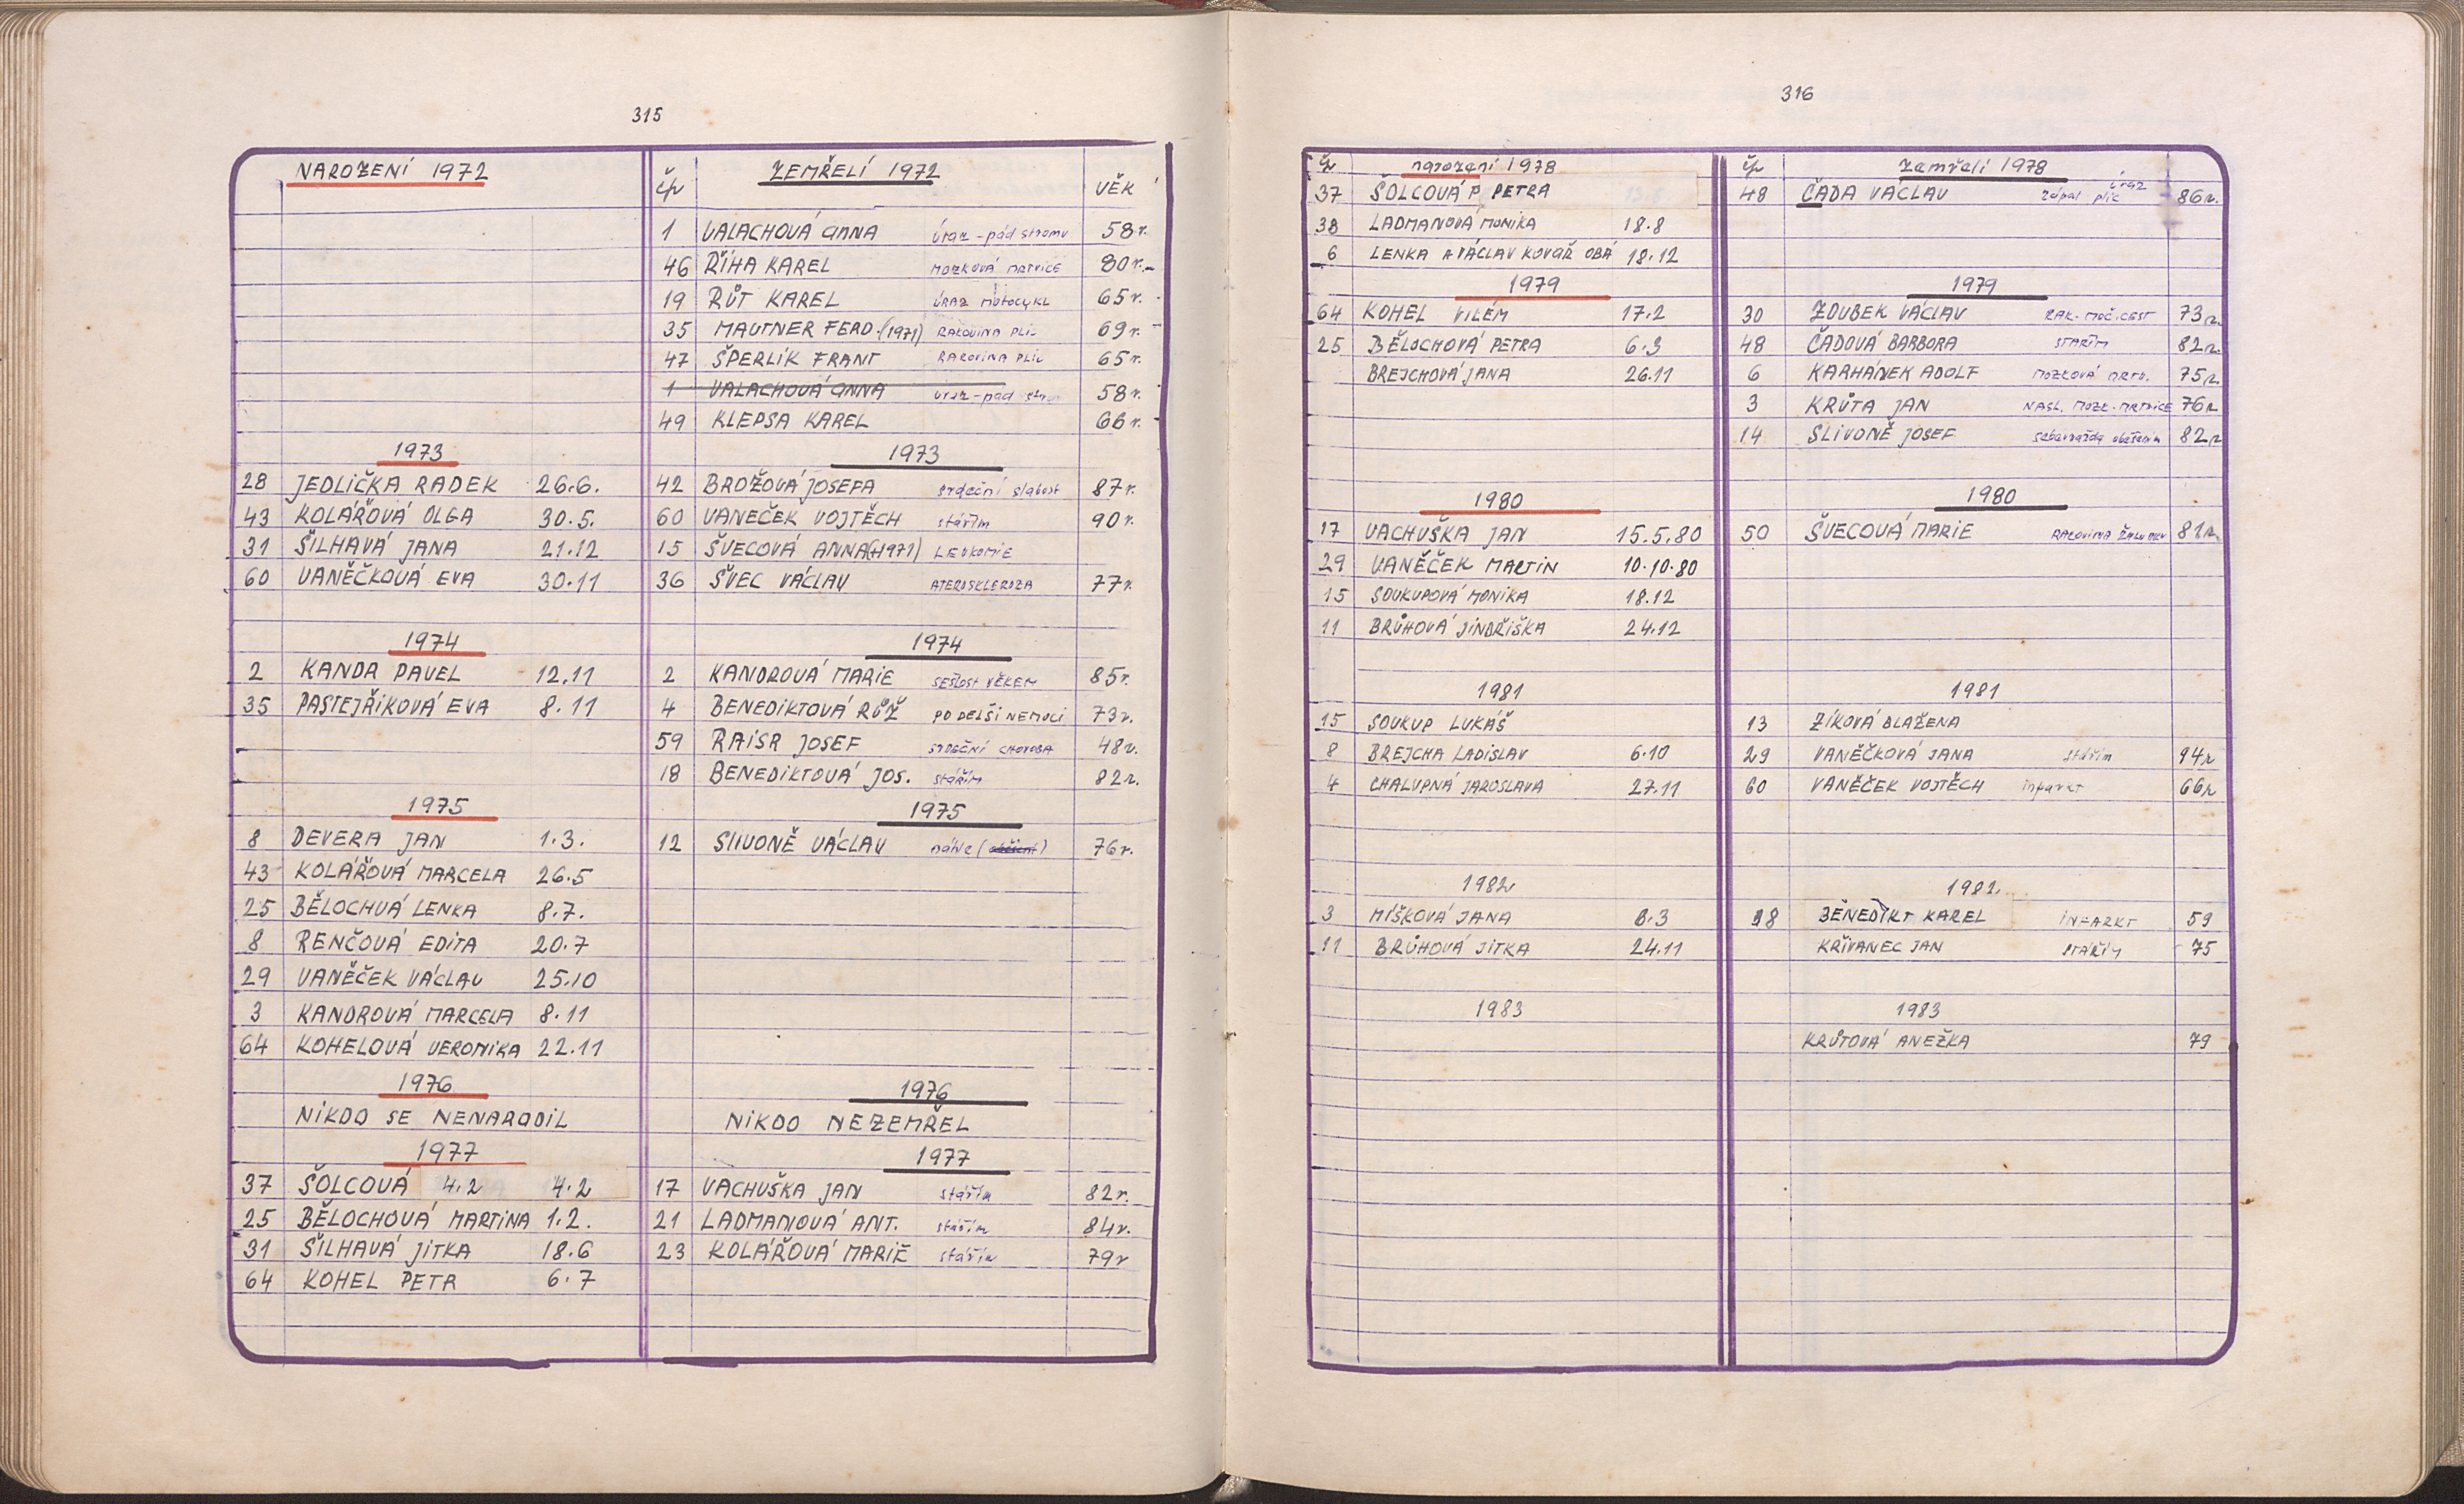 315
NAROZENÍ 1972
čp ZEMŘELÍ 1972 VĚK
1 VALACHOVÁ ANNA úraz - pád stromu 58 r.
46 ŘÍHA KAREL MOZKOVÁ MRTVICE 80 r.
19 RŮT KAREL ÚRAZ MOTOCYKL 65 r.
35 MAUTNER FERD. (1971) RAKOVINA PLIC 69 r.
47 ŠPERLÍK FRANT RAKOVINA PLIC 65 r.
1 VALACHOVÁ ANNA úraz - pád 58 r.
49 KLEPSA KAREL 66 r.
1973
28 JEDLIČKA RADEK 26.6.
43 KOLÁŘOVÁ OLGA 30.5.
31 ŠILHAVÁ JANA 21.12
60 VANĚČKOVÁ EVA 30.11
1973
42 BROŽOVÁ JOSEFA srdeční slabost 87 r.
60 VANEČEK VOJTĚCH stářím 90 r.
15 ŠVECOVÁ ANNA (+1971) LEUKOMIE
36 ŠVEC VÁCLAV ATEROSKLEROZA 77 r.
1974
2 KANDR PAVEL 12.11
35 PASTEJŘÍKOVÁ EVA 8.11
1974
2 KANDROVÁ MARIE SEŠLOST VĚKEM 85 r.
4 BENEDIKTOVÁ RŮŽ PO DELŠI NEMOCI 73 r.
59 RAISR JOSEF SRDEČNÍ CHOROBA 48 r.
18 BENEDIKTOVÁ JOS. stářím 82 r.
1975
8 DEVERA JAN 1.3.
43 KOLÁŘOVÁ MARCELA 26.5
25 BĚLOCHVÁ LENKA 8.7.
8 RENČOVÁ EDITA 20.7
29 VANĚČEK VÁCLAV 25.10
3 KANDROVÁ MARCELA 8.11
64 KOHELOVÁ VERONIKA 22.11
1975
12 SLIVONĚ VÁCLAV náhle 76 r.
1976
NIKDO SE NENARODIL
1976
NIKDO NEZEMŘEL
1977
37 ŠOLCOVÁ 4.2 4.2
25 BĚLOCHOVÁ MARTINA 1.2.
31 ŠILHAVÁ JITKA 18.6
64 KOHEL PETR 6.7
1977
17 VACHUŠKA JAN stářím 82 r.
21 LADMANOVÁ ANT. stářím 84 r.
23 KOLÁŘOVÁ MARIE stářím 79 r
316
čp narození 1978
37 ŠOLCOVÁ P PETRA
38 LADMANOVÁ MONIKA 18.8
6 LENKA A VÁCLAV KOVAŘ OBA 18.12
čp zemřelí 1978
48 ČADA VÁCLAV zápal plic úraz 86 r.
1979
64 KOHEL VILÉM 17.2
25 BĚLOCHOVÁ PETRA 6.3
BREJCHOVÁ JANA 26.11
1979
30 ZOUBEK VÁCLAV RAK. MOČ. CEST 73 r.
48 ČADOVÁ BARBORA STÁŘÍM 82 r.
6 KARHÁNEK ADOLF MOZKOVÁ MRTV. 75 r.
3 KRŮTA JAN NÁSL. MOZK. MRTVICE 76 r
14 SLIVONĚ JOSEF sebevražda oběšením 82 r
1980
17 VACHUŠKA JAN 15.5.80
29 VANĚČEK MARTIN 10.10.80
15 SOUKUPOVÁ MONIKA 18.12
11 BRŮHOVÁ JINDŘIŠKA 24.12
1980
50 ŠVECOVÁ MARIE RAKOVINA ŽALUDKU 81 r.
1981
15 SOUKUP LUKÁŠ
8 BREJCHA LADISLAV 6.10
4 CHALUPNÁ JAROSLAVA 27.11
1981
13 ZÍKOVÁ BLAŽENA
29 VANĚČKOVÁ JANA stářím 94 r
60 VANĚČEK VOJTĚCH infarkt 66 r
1982
3 MÍŠKOVÁ JANA 8.3
11 BRŮHOVÁ JITKA 24.11
1982
18 BENEDIKT KAREL INFARKT 59
KŘIVANEC JAN STÁŘÍM 75
1983
1983
KRŮTOVÁ ANEŽKA 79